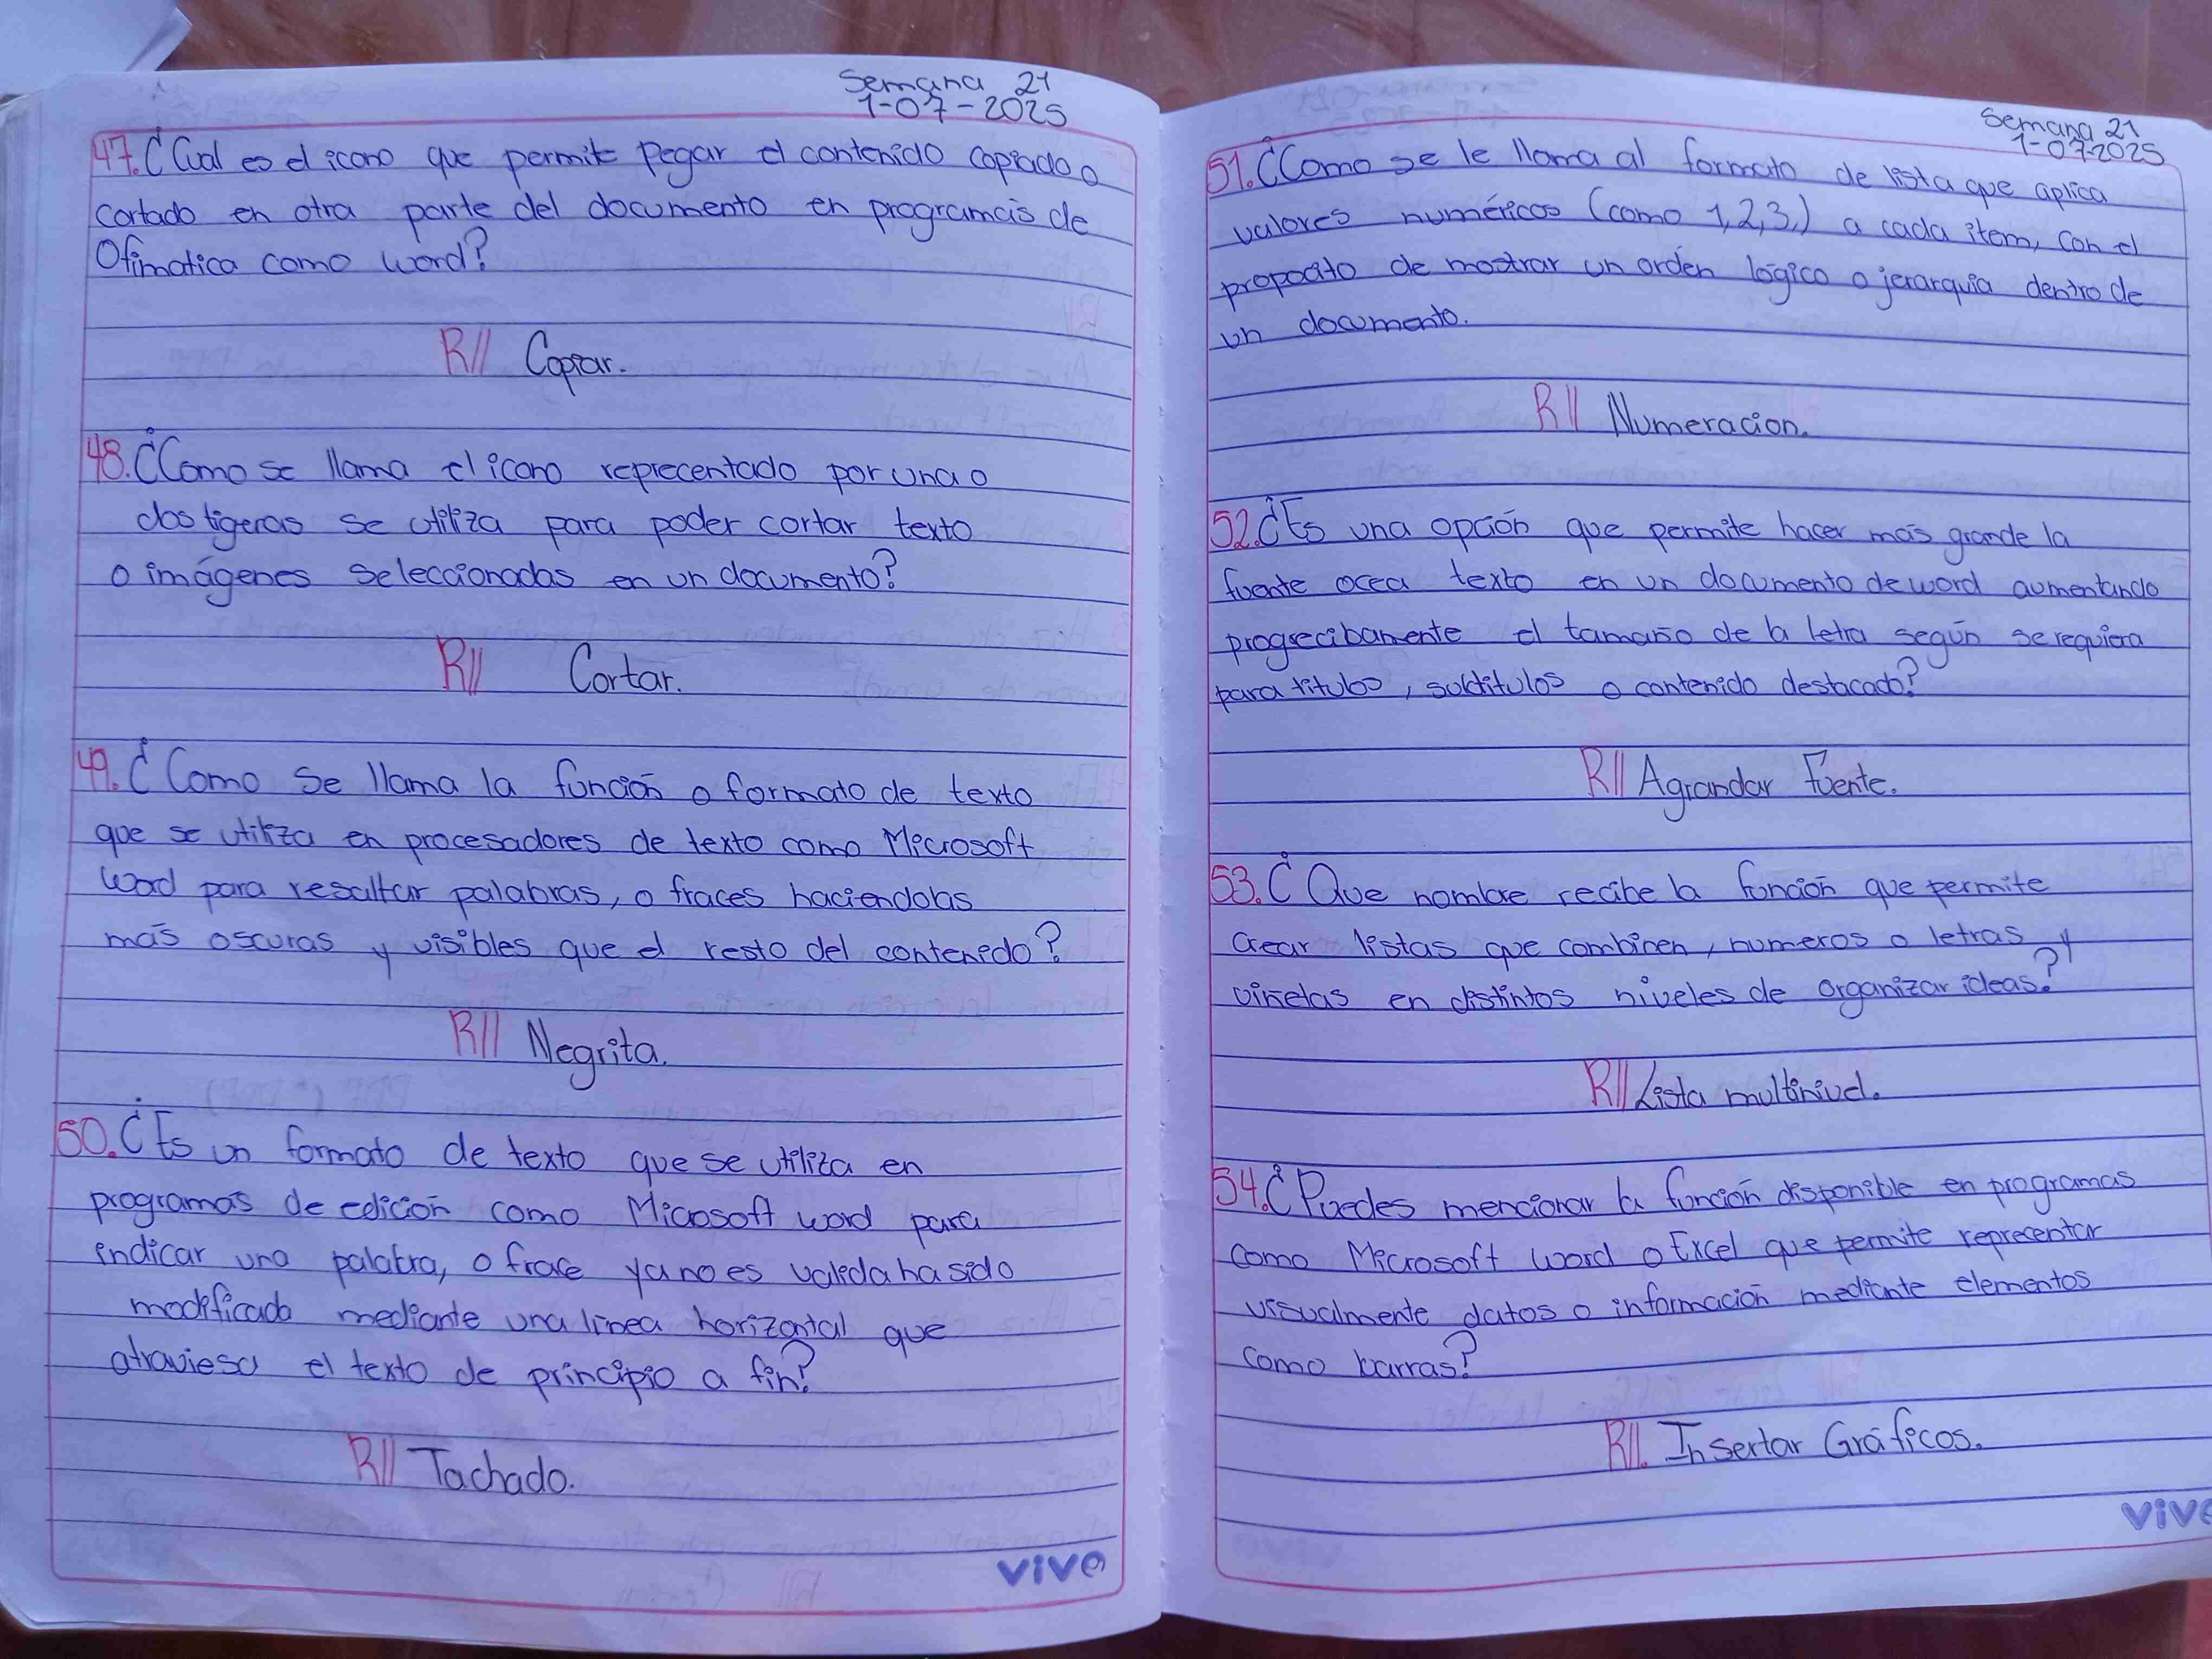 Semana 21
1-07-2025
47. ¿Cual es el icono que permite pegar el contenido copiado o
cortado en otra parte del documento en programas de
Ofimatica como word?
R// Copiar.
48. ¿Como se llama el icono reprecentado por una o
dos tigeras se utiliza para poder cortar texto
o imágenes seleccionadas en un documento?
R// Cortar.
49. ¿Como se llama la función o formato de texto
que se utiliza en procesadores de texto como Microsoft
Word para resaltar palabras, o fraces haciendolas
más oscuras y visibles que el resto del contenido?
R// Negrita.
50. ¿Es un formato de texto que se utiliza en
programas de edición como Microsoft word para
indicar una palabra, o frace ya no es valida ha sido
modificada mediante una linea horizontal que
atraviesa el texto de principio a fin?
R// Tachado.
vive
Semana 21
1-07-2025
51. ¿Como se le llama al formato de lista que aplica
valores numéricos (como 1,2,3,) a cada item, con el
propocito de mostrar un orden lógico o jerarquia dentro de
un documento.
R// Numeracion.
52. ¿Es una opción que permite hacer más grande la
fuente ocea texto en un documento de word aumentando
progrecibamente el tamaño de la letra según se requiera
para titulos, subtitulos o contenido destacado?
R// Agrandar Fuente.
53. ¿Que nombre recibe la función que permite
crear listas que combinen, numeros o letras y
viñetas en distintos niveles de organizar ideas?
R// Lista multinivel.
54. ¿Puedes mencionar la función disponible en programas
como Microsoft word o Excel que permite representar
visualmente datos o información mediante elementos
como barras?
R//. Insertar Gráficos.